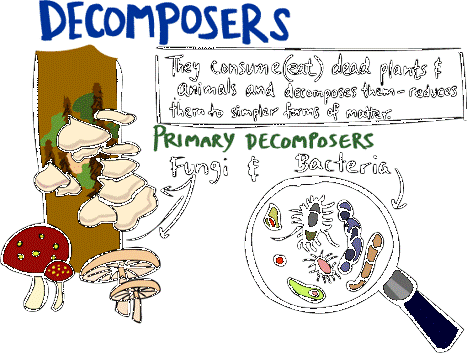 DECOMPOSERS
They consume(eat) dead plants &
animals and decomposes them - reduces
them to simpler forms of matter.
PRIMARY DECOMPOSERS
Fungi & Bacteria